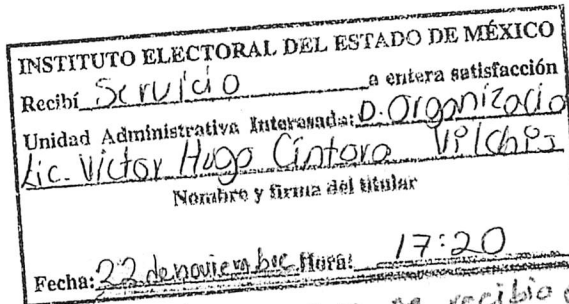 INSTITUTO ELECTORAL DEL ESTADO DE MÉXICO
Recibí Servicio a entera satisfacción
Unidad Administrativa Interesada: D. Organizacio
Lic. Victor Hugo Cintora Vilchis
Nombre y firma del titular
Fecha: 22 de noviembre Hora: 17:20
se recibio